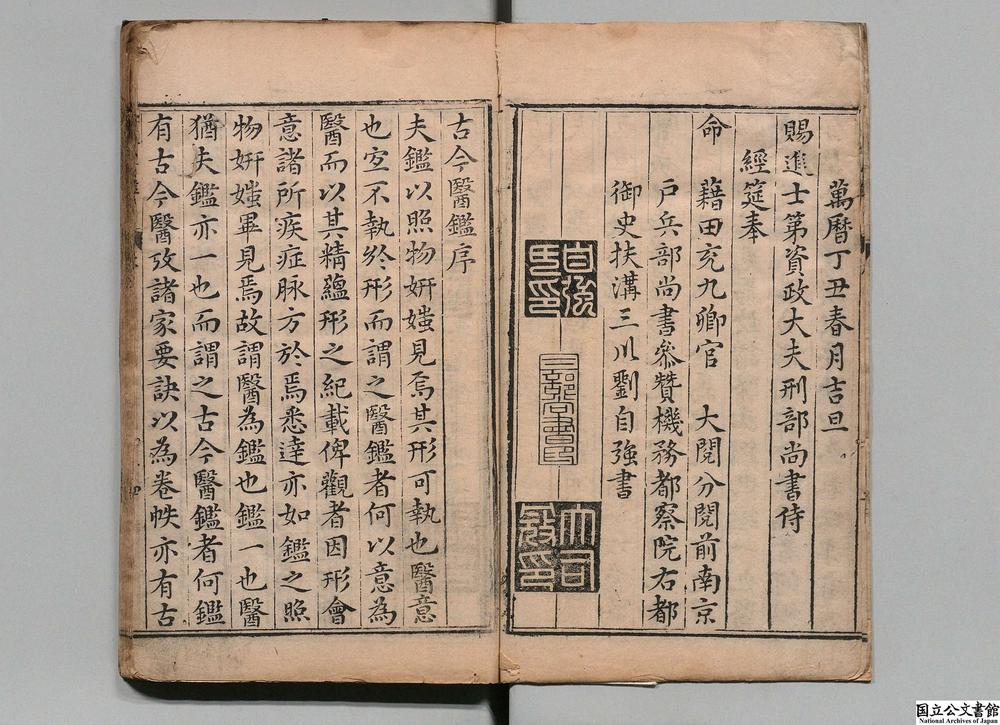 萬曆丁丑春月吉旦
賜進士第資政大夫刑部尚書侍
經筵奉
命 藉田充九卿官 大閱分閱前南京
戶兵部尚書叅贊機務都察院右都
御史扶溝三川劉自強書
自強
三部尚書
大司
古今醫鑑序
夫鑑以照物妍媸見焉其形可執也醫意
也宐不執於形而謂之醫鑑者何以意為
醫而以其精蘊形之紀載俾觀者因形會
意諸所疾症脉方於焉悉達亦如鑑之照
物妍媸畢見焉故謂醫為鑑也鑑一也醫
猶夫鑑亦一也而謂之古今醫鑑者何鑑
有古今醫攷諸家要訣以為卷帙亦有古
国立公文書館
National Archives of Japan